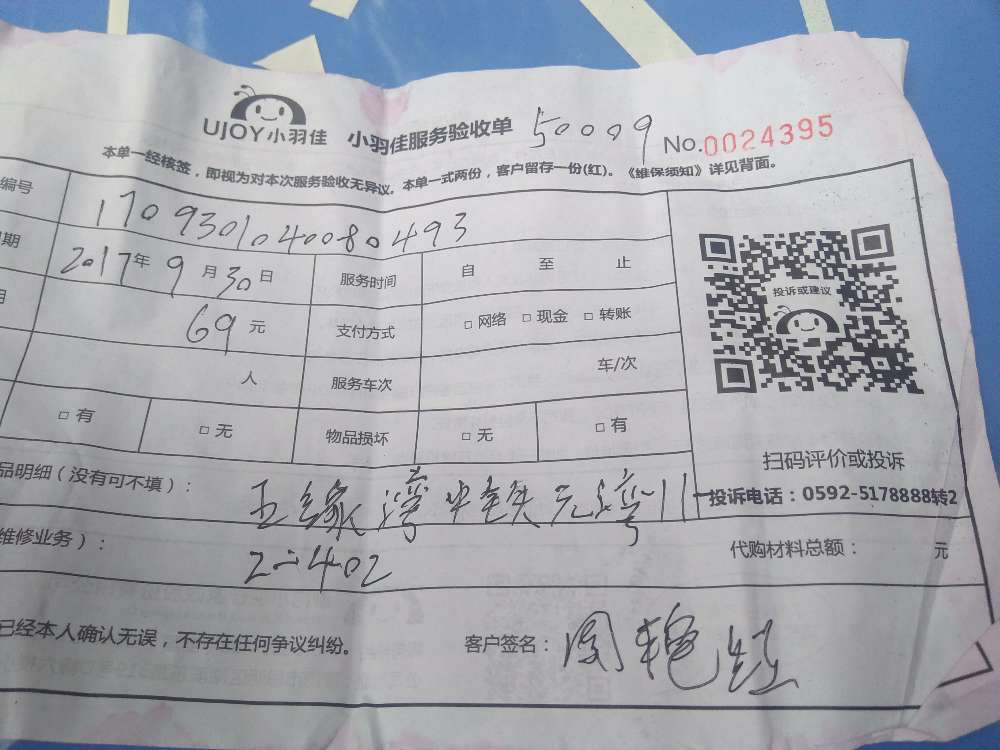 UJOY小羽佳 小羽佳服务验收单 50009 No.0024395
本单一经核签，即视为对本次服务验收无异议。本单一式两份，客户留存一份(红)。《维保须知》详见背面。
编号 1709301040080493
期 2017年9月30日 服务时间 自 至 止
目 69元 支付方式 □网络 □现金 □转账
人 服务车次 车/次
□有 □无 物品损坏 □无 □有
投诉或建议
扫码评价或投诉
投诉电话：0592-5178888转2
品明细（没有可不填）： 五缘湾
维修业务）： 2-402 代购材料总额： 元
已经本人确认无误，不存在任何争议纠纷。 客户签名：